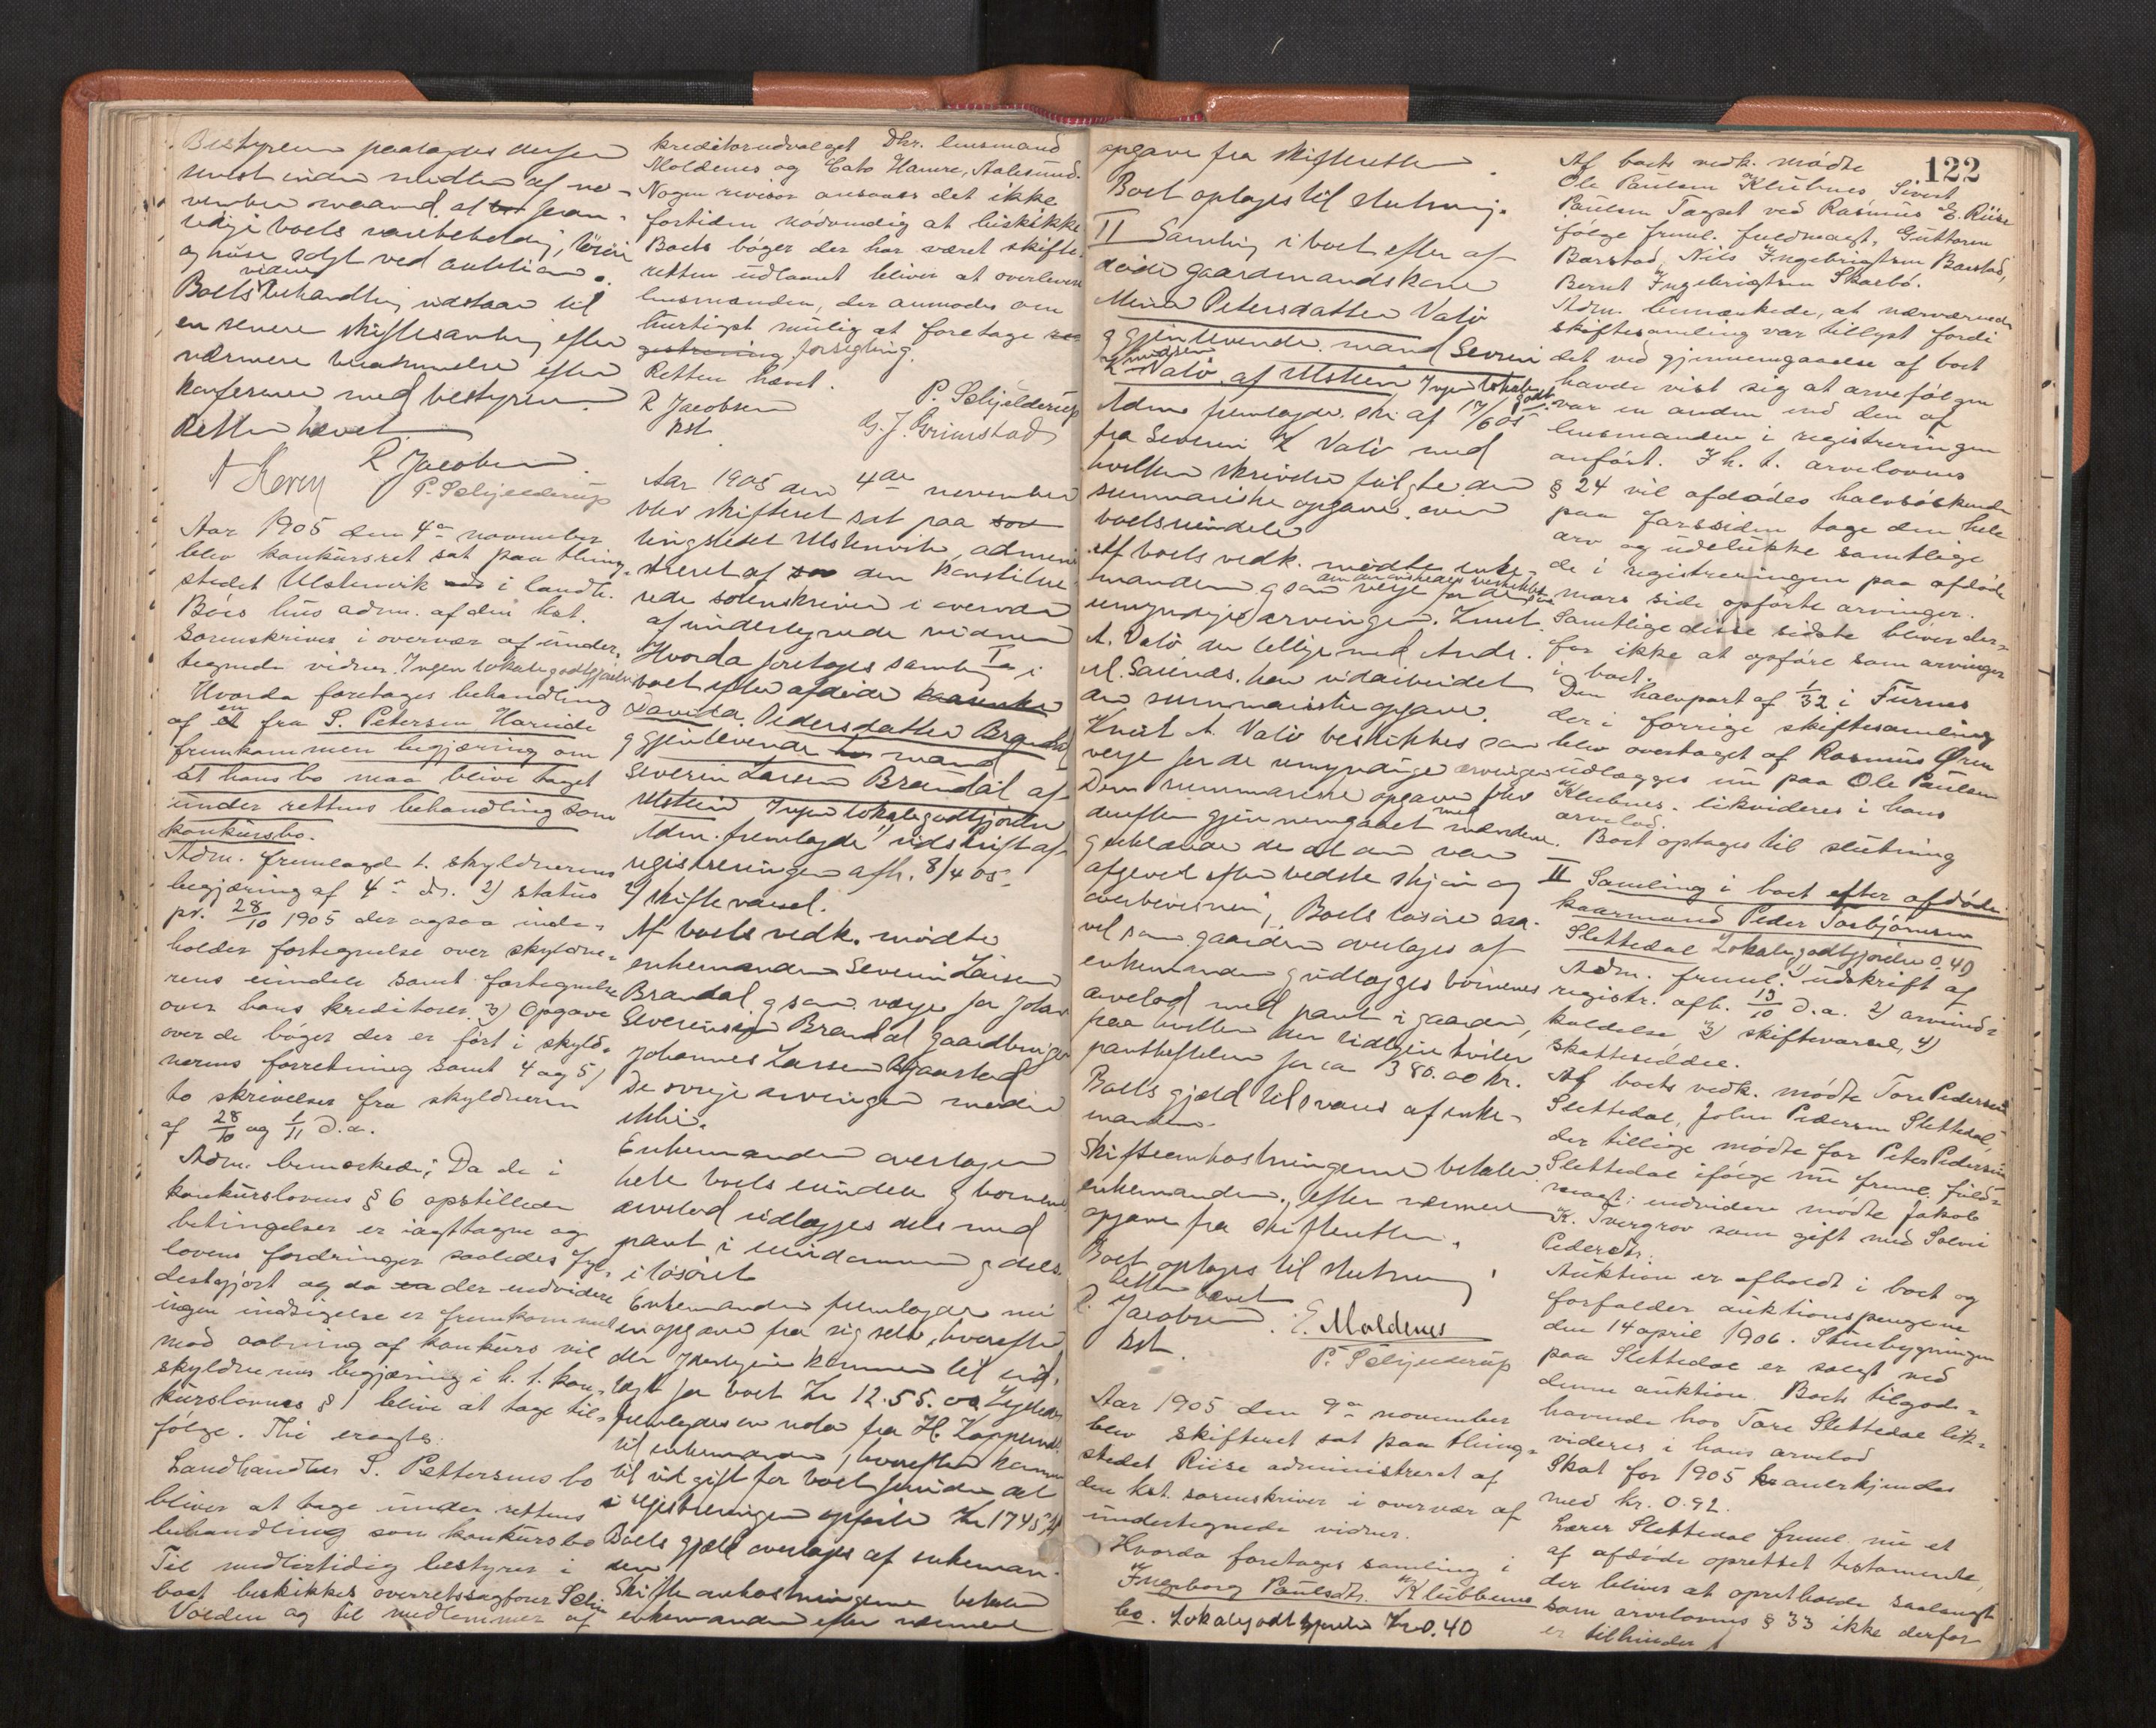 Bestyreren paalagdes derfor
senest inden midten af no-
vember maaned at
boets varebeholdning, løsøre
og huse solgt ved auktion.
Boets videre behandling udstaar til
en senere skiftesamling efter
nærmere berammelse efter
konference med bestyreren.
Retten hævet.
R Jacobsen.
P. Schjelderup
Aar 1905 den 4de november
blev konkursret sat paa thing-
stedet Ulstenvik i landh.
Bøes hus adm. af den kst.
sorenskriver i overvær af under-
tegnede vidner. Ingen lokalegodtgjørelse
Hvorda foretages behandling
af en fra S. Petersen Hareide
fremkommen begjæring om
at hans bo maa blive taget
under rettens behandling som
konkursbo.
Adm. fremlagde 1. skyldnerens
begjæring af 4de ds. 2) status
pr. 28/10 1905 der ogsaa inde-
holder fortegnelse over skyldne-
rens eiendele samt fortegnelse
over hans kreditorer. 3) Opgave
over de bøger der er ført i skyld-
nerens forretning samt 4 og 5)
to skrivelser fra skyldneren
af 28/10 og 1/11 d.a.
Adm. bemærkede: Da de i
konkurslovens § 6 opstillede
betingelser er iagttagne og
lovens fordringer saaledes fyl-
destgjort og da der endvidere
ingen indsigelse er fremkommet
mod aabning af konkurs vil
skyldnerens begjæring i h. t. kon-
kurslovens § 1 blive at tage til-
følge. Thi eragtes:
Landhandler S. Pettersens bo
bliver at tage under rettens
behandling som konkursbo
Til midlertidig bestyrer i
boet beskikkes overretssagfører
Volden og til medlemmer af
kreditorudvalget Dhr. lensmand
Moldenes og Cato Hamre, Aalesund.
Nogen revisor ansaaes det ikke
fortiden nødvendig at beskikke
Boets bøger der har været skifte-
retten udlaant bliver at overlevere
lensmanden, der anmodes om
hurtigst mulig at foretage re-
gistrering forsegling.
Retten hævet.
R Jacobsen P. Schjelderup
kst. G. J. Grimstad
Aar 1905 den 4de november
blev skifteret sat paa
tingstedet Ulstenvik, admini-
streret af den konstitue-
rede sorenskriver i overvær
af undertegnede vidner
Hvorda foretages samling I i
boet efter afdøde
Davida Pedersdatter Brandal
og gjenlevende mand
Severin Larsen Brandal af
Ulstein Ingen lokalegodtgjørelse
Adm. fremlagde 1) udskrift af
registreringen afh. 8/4 05
2) skiftevarsel.
Af boets vedk. mødte
enkemanden Severin Larsen
Brandal og som verge for Johan
Severinsen Brandal gaardbruger
Johannes Larsen
De øvrige arvinger mødte
ikke.
Enkemanden overtager
hele boets eiendele og børnenes
arvelod udlægges dels med
pant i eiendommen og dels
i løsøret
Enkemanden fremlagde nu
en opgave fra sig selv, hvorefter
der yderligere kommer til ud-
lagt for boet Kr 12.55.
fremlagdes en nota fra H.
til enkemanden, hvorefter kommer
til udgift for boet foruden det
i registreringen opførte Kr 17.45
Boets gjæld overtages af enkeman-
den
Skifteomkostningerne betaler
enkemanden efter nærmere
122
opgave fra skifteretten.
Boet optages til slutning.
II Samling i boet efter af-
døde gaardmandskone
Petersdatter Valø
og gjenlevende mand Severin
Knudsen
Valø af Ulstein Ingen lokalegodt.
Adm fremlagde skr. af 17/6 05
fra Severin K Valø med
hvilken skrivelse fulgte den
summariske opgave over
boets eiendele
Af boets vedk. mødte enke-
manden og som verge for de
umyndige arvinger Knut
A. Valø der tillige med Andr.
M. Saunes har udarbeidet
den summariske opgave.
Knut A. Valø beskikkes som
verge for de umyndige arvinger
Den summariske opgave blev
derefter gjennemgaaet med mændene
og erklærede de at den var
afgivet efter bedste skjøn og
overbevisning. Boets løsøre saa-
vel som gaarden overtages af
enkemanden og udlægges børnenes
arvelod med pant i gaarden,
paa hvilken der tidligere hviler
pantheftelser for ca 380.00 kr.
Boets gjæld tilsvares af enke-
manden.
Skifteomkostningerne betaler
enkemanden, efter nærmere
opgave fra skifteretten.
Boet optages til slutning
Retten hævet
R. Jacobsen E. Moldenes
kst. P. Schjelderup
Aar 1905 den 9de november
blev skifteret sat paa thing-
stedet Riise administreret af
den kst. sorenskriver i overvær af
undertegnede vidner.
Hvorda foretages samling i
Ingeborg Paulsdtr. Klubbenes
bo. Lokalegodtgjørelse Kr 0.40
Af boets vedk. mødte
Ole Paulsen Klubnes, Sivert
Paulsen ved Rasmus E. Riise
ifølge freml. fuldmagt, Guttorm
Barstad, Nils Ingebrigtsen Barstad,
Bernt Ingebrigtsen Skarbø.
Adm. bemærkede, at nærværende
skiftesamling var tillyst fordi
det ved gjennemgaaelse af boet
havde vist sig at arvefølgen
var en anden end den af
lensmanden i registreringen
anført. I h. t. arvelovens
§ 24 vil afdødes halvsøskende
paa farssiden tage den hele
arv og udelukke samtlige
de i registreringen paa afdøde
mors side opførte arvinger.
Samtlige disse sidste bliver der-
for ikke at opføre som arvinger
i boet.
Den halvpart af 1/32 i Furnes
der i forrige skiftesamling
blev overtaget af Rasmus Øren
udlægges nu paa Ole Paulsen
Klubnes. likvideres i hans
arvelod.
Boet optages til slutning
II Samling i boet efter afdøde
kaarmand Peder Torbjørnsen
Slettedal Lokalegodtgjørelse 0.40
Adm. freml. 1) udskrift af
registr. afh. 13/10 d.a. 2) arvind-
kaldelse, 3) skiftevarsel, 4)
skatteseddel.
Af boets vedk. mødte Tore Pedersen
Slettedal, John Pedersen Slettedal,
der tillige mødte for Peter Pedersen
Slettedal ifølge nu freml. fuld-
magt; endvidere mødte Jakob
K. Tvergrov som gift med
Pedersdtr.
Auktion er afholdt i boet og
forfalder auktionspengene
den 14 april 1906. Stuebygningen
paa Slettedal er solgt ved
denne auktion. Boets tilgode-
havende hos Tore Slettedal lik-
videres i hans arvelod
Skat for 1905 anerkjendes
med kr. 0.92.
Lærer Slettedal freml. nu et
af afdøde oprettet testamente,
der bliver at opretholde saalangt
som arvelovens § 33 ikke derfor
er tilhinder